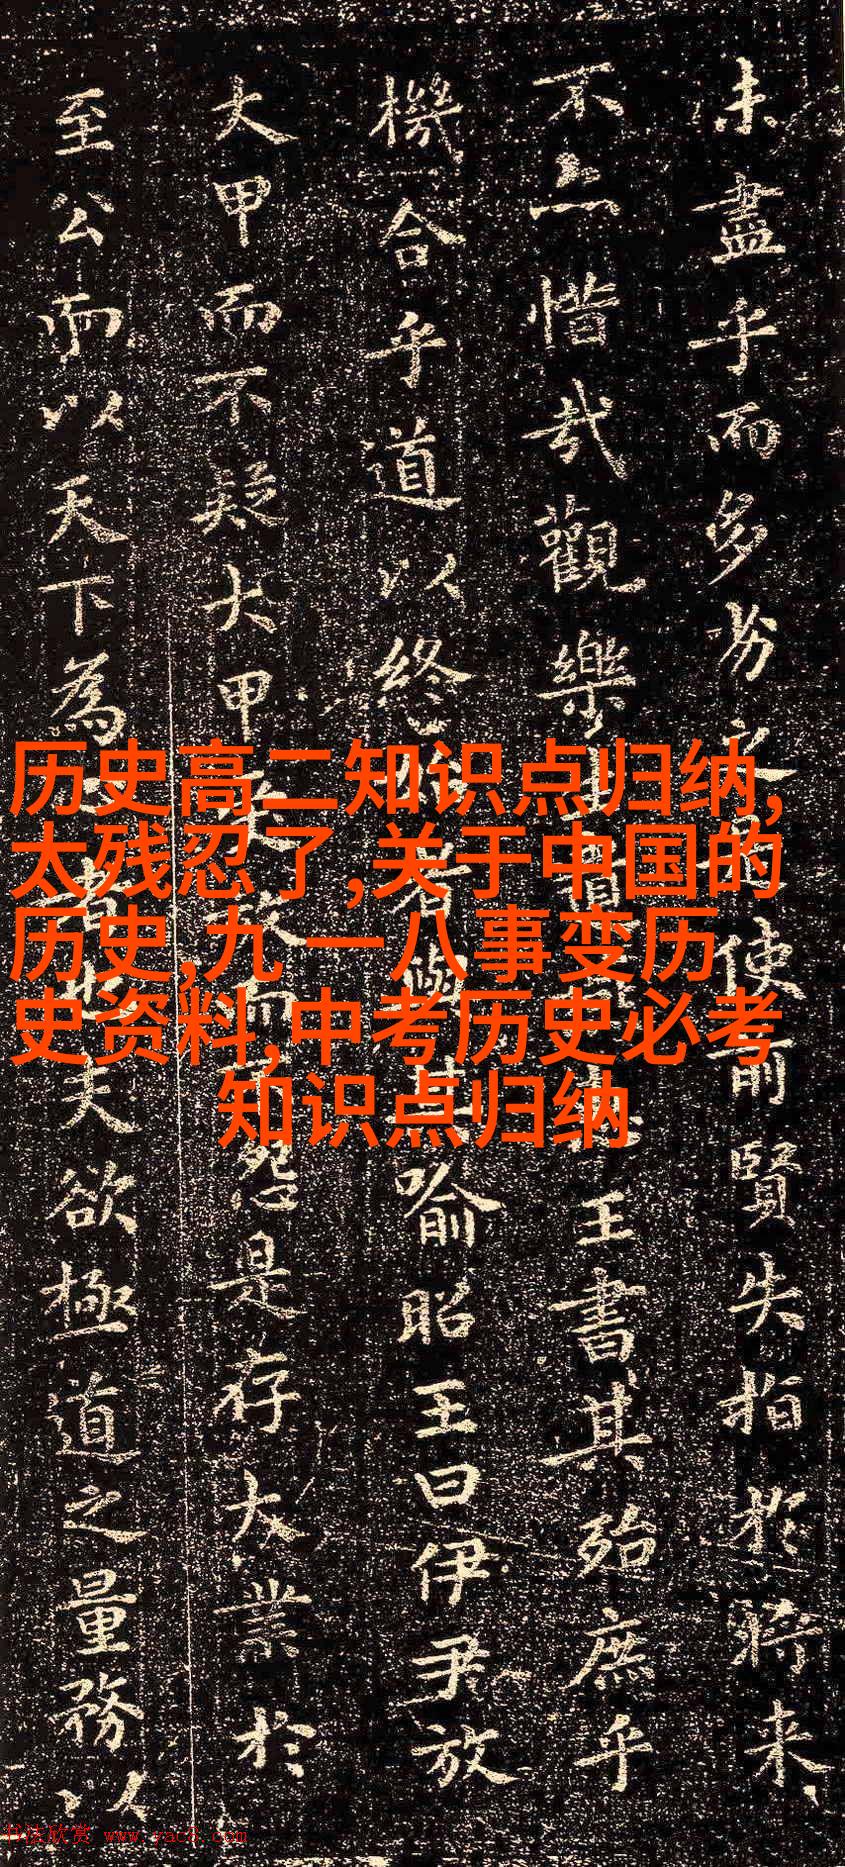 未盡乎而多劣之使前賢失指於將来
不亦惜哉觀樂遺王書其殆庶乎
機合乎道以終者與其喻昭王曰伊尹放
大甲而不疑大甲受放而不怨是存大業於
至公而以天下為者也夫欲極道之量務以
历史高二知识点归纳,
太残忍了,关于中国的
历史,九 一八事变历
史资料,中考历史必考
知识点归纳
书法欣赏 www.yac8.com